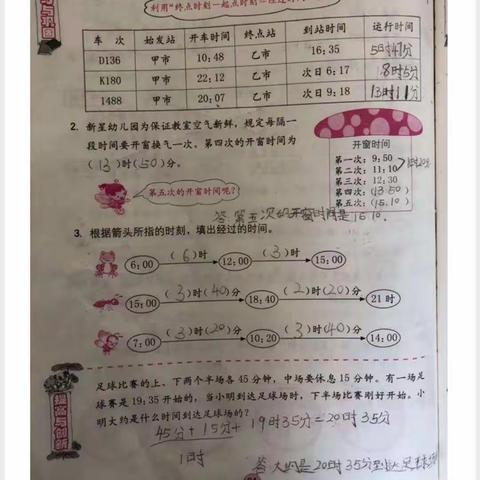 习与巩固
利用“终点时刻－起点时刻＝经过时间
车 次 始发站 开车时间 终点站 到站时间 运行时间
D136 甲市 10:48 乙市 16:35 5时47分
K180 甲市 22:12 乙市 次日 6:17 8时5分
1488 甲市 20:07 乙市 次日 9:18 13时11分
2. 新星幼儿园为保证教室空气新鲜，规定每隔一
段时间要开窗换气一次。第四次的开窗时间为
（13）时（50）分。
第五次的开窗时间呢？
开窗时间
第一次：9:50
第二次：11:10
第三次：12:30
第四次：(13:50)
第五次：(15:10)
答：第五次的开窗时间是15:10.
3. 根据箭头所指的时刻，填出经过的时间。
6:00 （6）时 12:00 （3）时 15:00
15:00 （3）时（40）分 18:40 （2）时（20）分 21时
7:00 （3）时（20）分 10:20 （3）时（40）分 14:00
提高与创新
足球比赛的上、下两个半场各 45 分钟，中场要休息 15 分钟。有一场足
球赛是 19:35 开始的，当小明到达足球场时，下半场比赛刚好开始。小
明大约是什么时间到达足球场的？
45分+15分+19时35分=20时35分
1时
答：大约是20时35分到达足球场